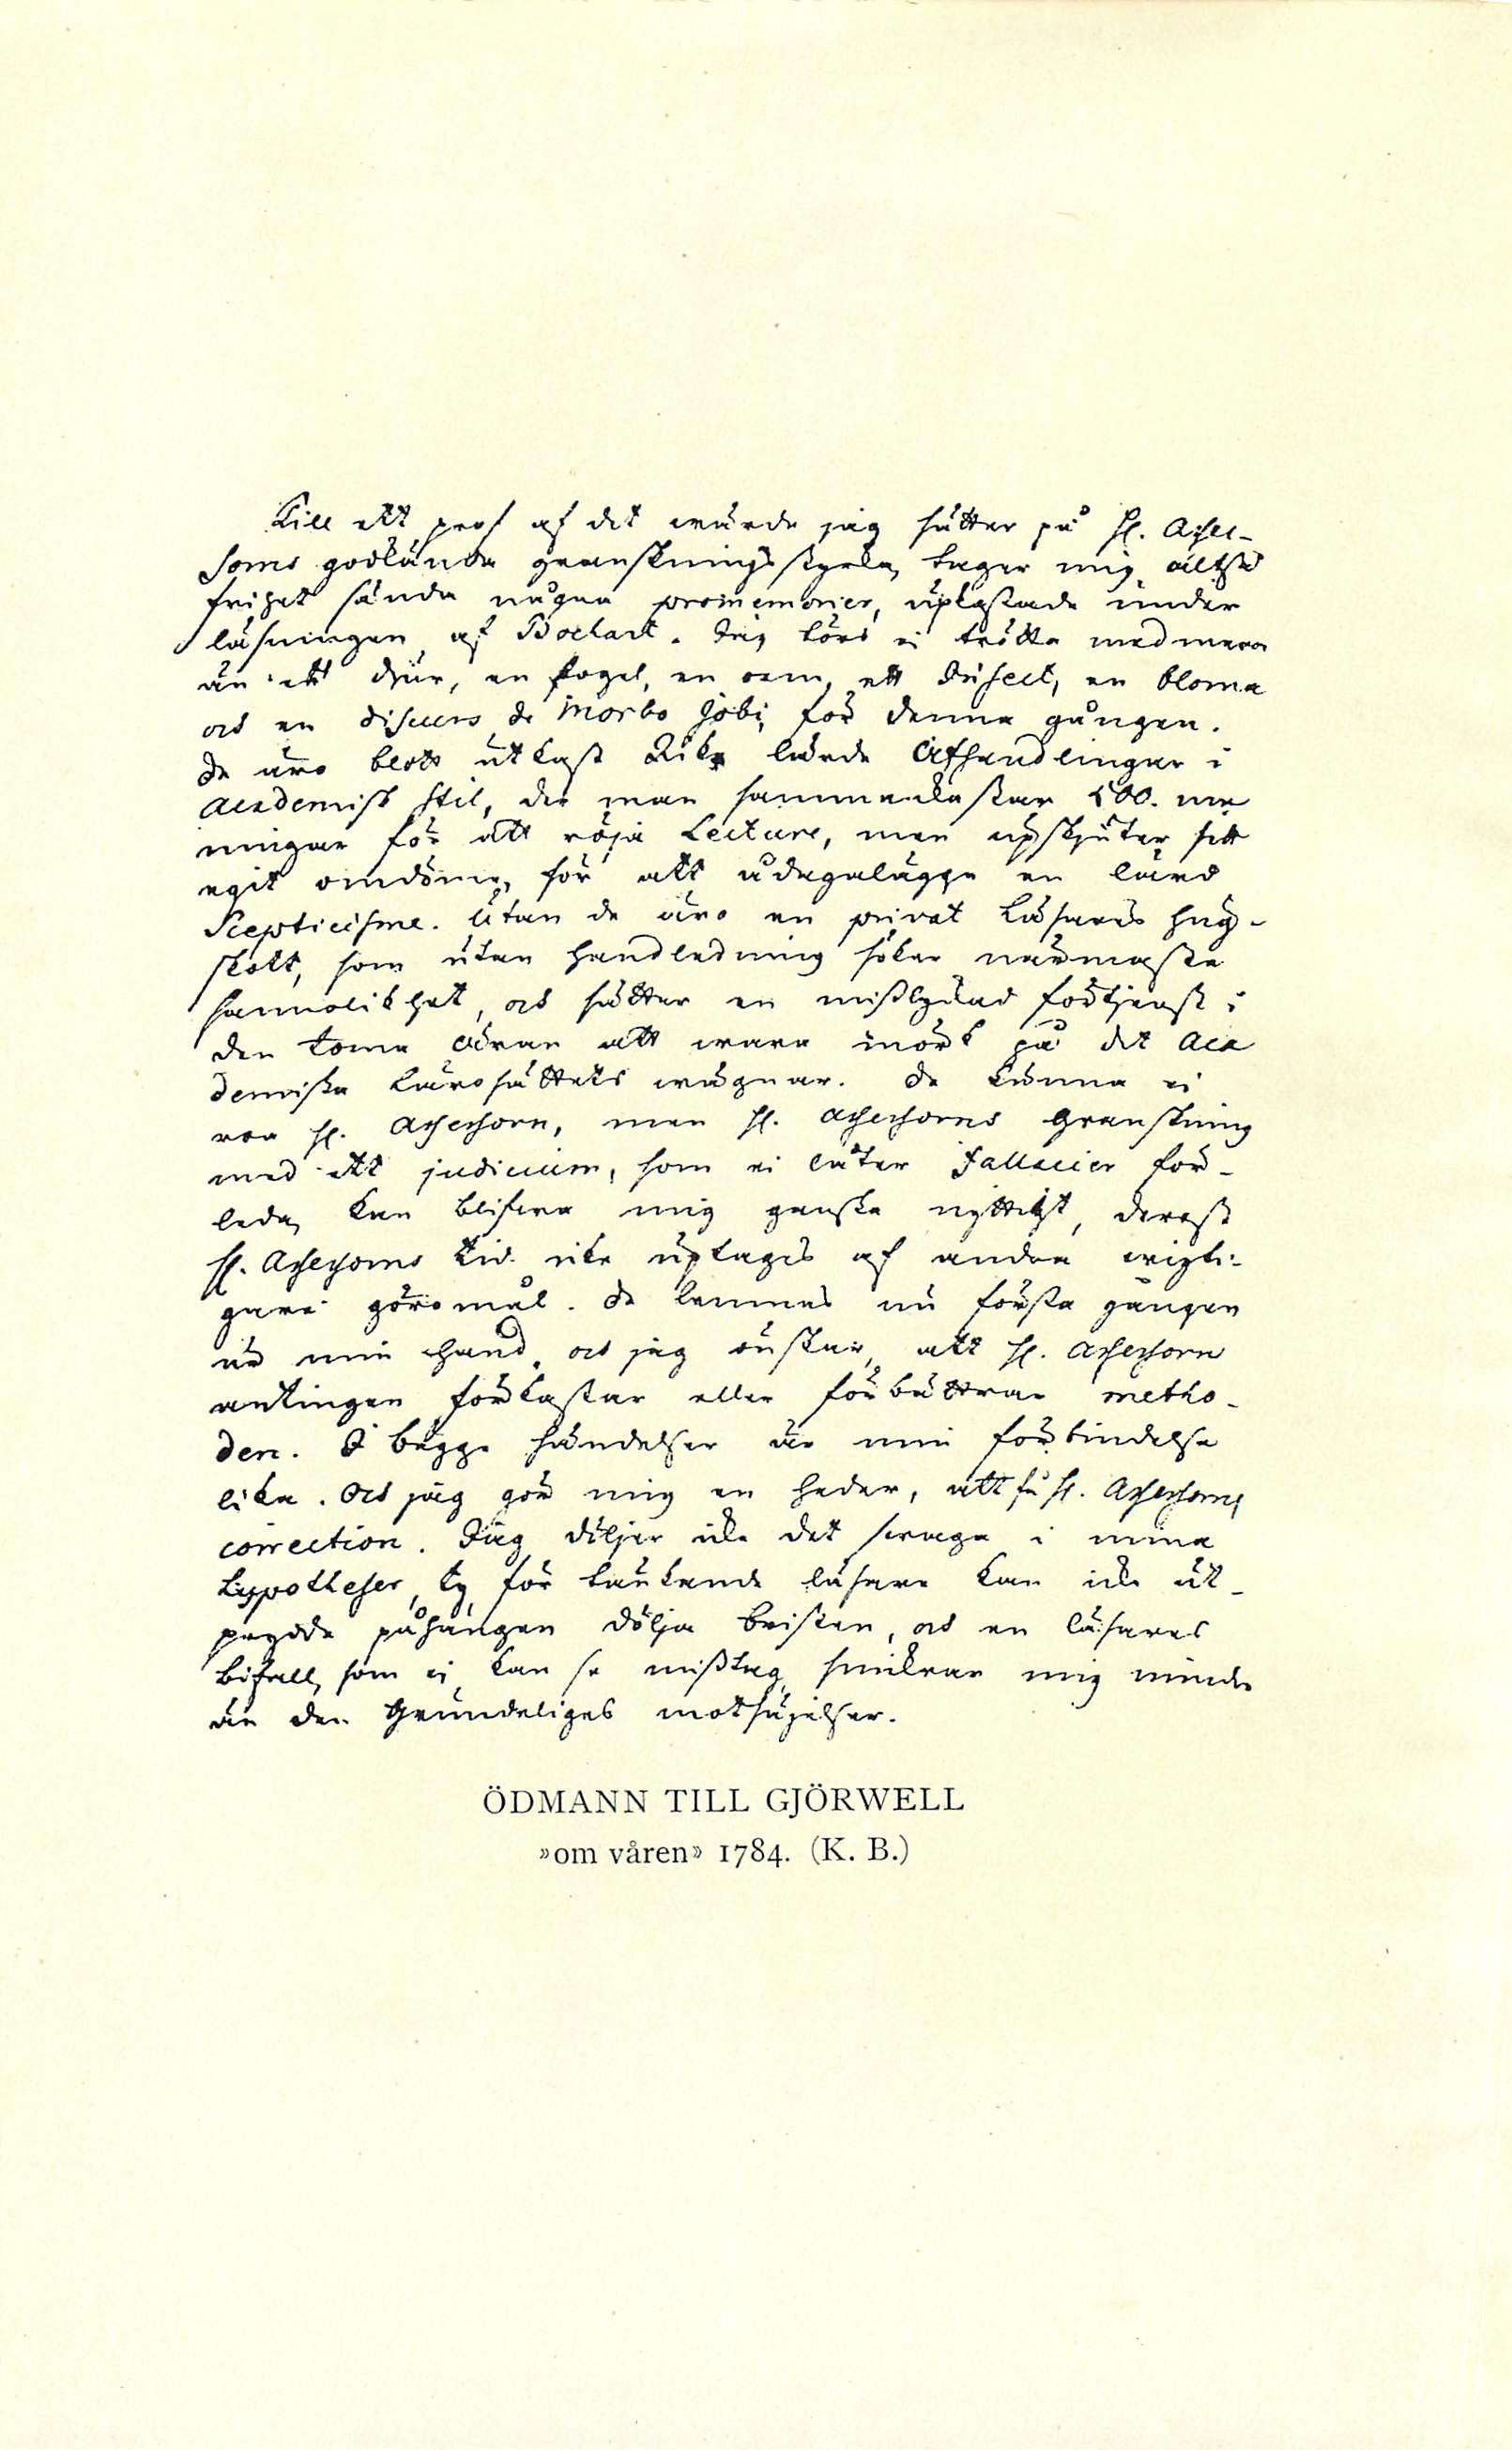 Till ett prof af det wärde jag sätter på H. Asses-
sorns godkända granskningsstyrka, tager mig altså
frihet sända några promemorier, upkastade under
läsningen af Bochart. Jag törs ej trötta med mera
än ett djur, en fogel, en orm, ett Insect, en bloma
och en discurs de Morbo Jobi, för denna gången.
De äro blott utkast Icke lärde Afhandlingar i
Academisk stil, der man sammankastar 500. me
ningar för att röja Lecture, men upskjuter sitt
egit omdöme, för att ådagalägga en lärd
Scepticisme. Utan de äro en privat Läsares hug-
skott, som utan handledning söker närmaste
sannolikhet, och sätter en misslyckad förtjenst i
den toma äran att wara mörk på det Aca
demiska Lärosättets wägnar. De kunna ej
roa H. Assessorn, men H. Assessorns Granskning
med ett judicium, som ej låter Fallacier för-
leda, kan blifva mig ganska nyttigt, derest
H. Assessorns tid icke uptages af andra wigti-
gare göromål. De lemnas nu första gången
ur min hand, och jag önskar, att H. Assessorn
antingen förkastar eller förbättrar metho-
den. I bägge händelser är min förbindelse
lika. Och jag gör mig en heder, att få H. Assessorns
correction. Jag döljer icke det swaga i mina
Hypotheser, ty för tänkande läsare kan icke ut-
prydde påhängen dölja bristen, och en läsares
bifall, som ej kan se misstag, smickrar mig mindre
än den Grundeliges motsägelser.
ÖDMANN TILL GJÖRWELL
»om våren» 1784. (K. B.)